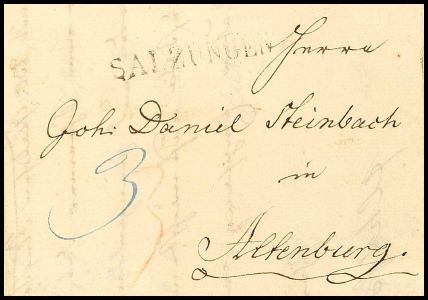 SALZUNGEN
Herrn
Joh: Daniel Steinbach
in
Altenburg.
3